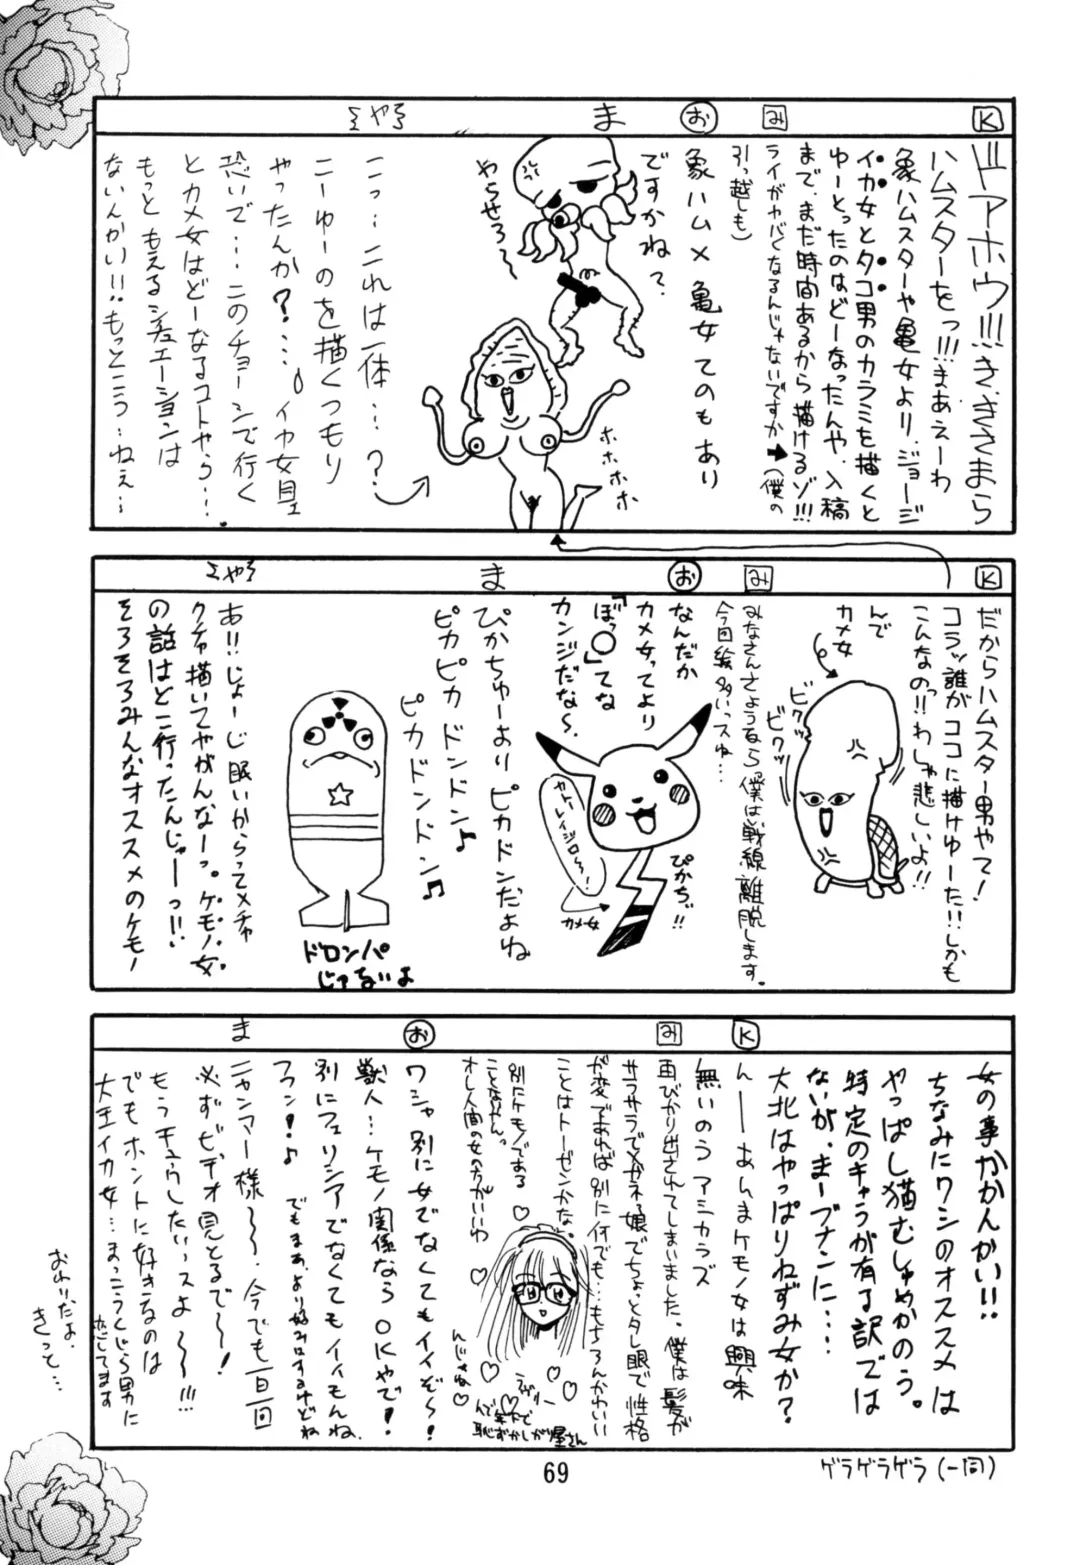 K
ドアホウ!!!ききさまら
ハムスターをっ!!!まあえーわ
象ハムスターや亀女より、ジョージ
イカ女とタコ男のカラミを描くと
ゆーとったのはどーなったんや、入稿
まで、まだ時間あるから描けるゾ!!!
み
ライがヤバくなるんじゃないですか➡(僕の
引っ越しも)
お
象ハム×亀女てのもあり
ですかね?
ま
やらせろ〜
ホホホホ
ミヤろ
こっ…これは一体…?
こーゆーのを描くつもり
やったんか?…イカ女星
恐いで…このチョーシで行く
とカメ女はどーなるコトやら…
もっともえるシチュエーションは
ないんかい!!もっとこう…ねぇ…
K
だからハムスター男やて!
コラッ誰がココに描けゆーた!!しかも
こんなのっ!!わしゃ悲しいよ!!
んで
カメ女
ビクッ
ビクッ
み
みなさんさようなら僕は戦線離脱します。
今回絵多いっスね…
お
なんだか
カメ女ってより
「ぼっ○」てな
カンジだな〜
ぴかぢゅ!!
カメ女
ま
ぴかちゅーよりピカドンだよね
ピカピカドンドン♪
ピカドンドン♫
ドロンパ
じゃないよ
ミヤろ
あ!!じょーじ眠いからってメチャ
クチャ描いてやがんなーっ。ケモノ女
の話はどこ行ったんじゃーっ!!
そろそろみんなオススメのケモノ
女の事かかんかい!!
ちなみにワシのオススメは
やっぱし猫むしゃめかのう。
特定のキャラが有る訳では
ないが、まーブナンに…
大北はやっぱりねずみ女か?
K
んーーあんまケモノ女は興味
無いのうアシカラズ
み
再びかり出されてしまいました。僕は髪が
サラサラでメガネっ娘でちょっとタレ眼で性格
が変であれば別に何でも…もちろんかわいい
ことはトーゼンかな。
別にケモノである
ことなかやんっ
オレ人間の女の方がいいわ
んじゃね♡
んで年下で
恥ずかしがり屋さん
お
ワシャ別に女でなくてもイイぞ〜!
獣人…ケモノ関係ならOKやで!
別にフェリシアでなくてもイイもんね
フフン!♪
でもまあ、より好みはするけどね
ま
ニャンマー様〜〜、今でも一日一回
必ずビデオ見とるで〜!
もうチュウしたいっスよ〜〜!!!
でもホントに好きなのは
大王イカ女…まっこうくじら男に
恋してます
おわりだよ
きっと…
69
ゲラゲラゲラ(一同)